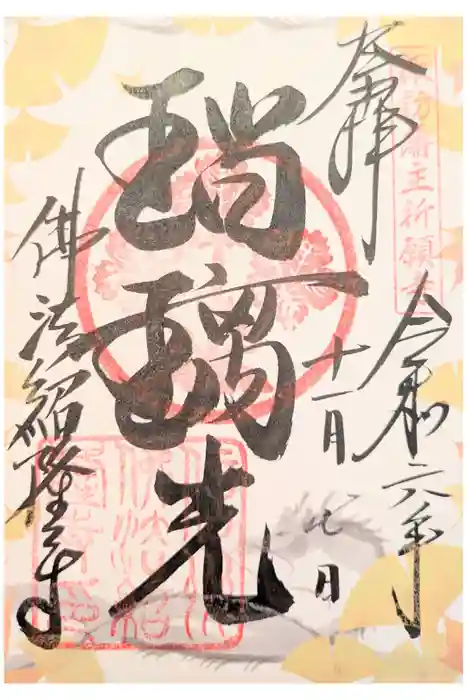 奉拝
諏訪藩主祈願寺
令和六年
十一月七日
瑠璃光
佛法紹隆寺